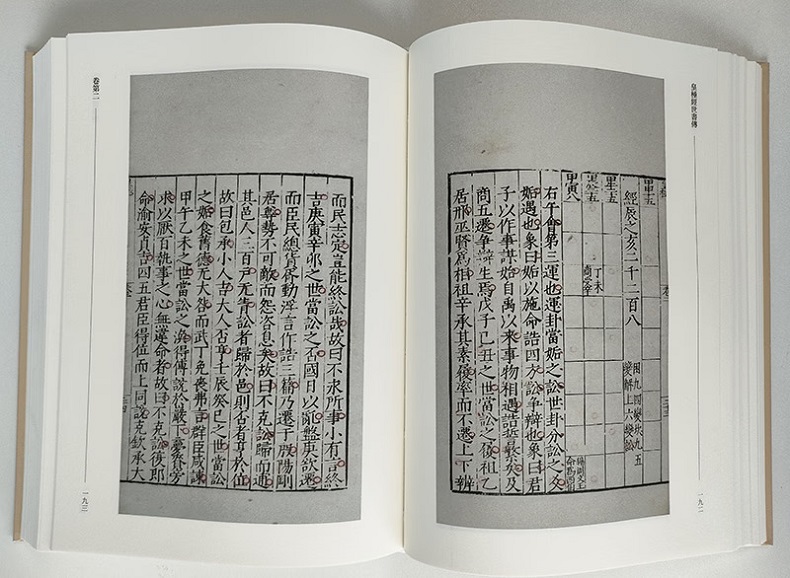 皇極經世書傳
經辰之亥二千二百八
困九四變坎九五
變解上六變訟
丁未
甲寅八
右午會第三運也運卦當姤之訟世卦分訟之爻
姤遇也象曰姤以施命誥四方訟爭辯也象曰君
子以作事謀始自禹以來事物相遇誥誓繁矣及
商五遷爭辯生焉戊子己丑之世當訟之復祖乙
居邢巫賢爲相祖辛承其素復率而不遷上下辨
一九二
而民志定豈能終訟哉故曰不永所事小有言終
吉庚寅辛卯之世當訟之否國日以亂盤庚欲遷
而臣民總貨胥動浮言作誥三篇乃遷于殷陽剛
居尊勢不可敵而怨咨息矣故曰不克訟歸而逋
其邑人三百戶无眚訟者歸於邑則否者亨於位
故曰包承小人吉大人否亨壬辰癸巳之世當訟
之姤食舊德无大咎而武丁免喪弗言群臣咸諫
甲午乙未之世當訟之渙得傅說於巖下憂賚旁
求以厭百執事之心無違命者故曰不克訟復即
命渝安貞吉四五君臣得位而上同說克欽承大
卷第二
一九三